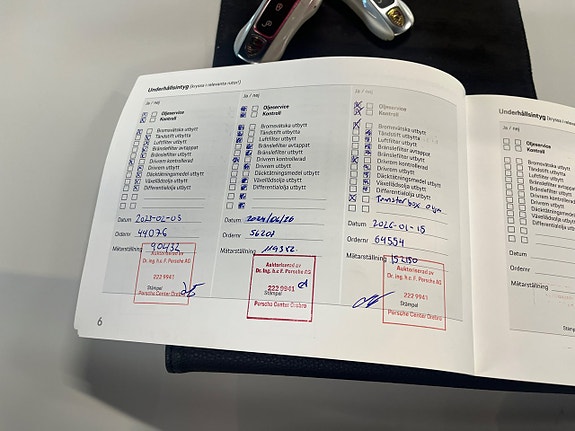 Underhållsintyg (kryssa i relevanta rutor!)
Ja / nej
Oljeservice
Kontroll
Bromsvätska utbytt
Tändstift utbytta
Luftfilter utbytt
Bränslefilter utbytt
Drivrem kontrollerad
Drivrem utbytt
Däcktätningsmedel utbytt
Växellådsolja utbytt
Differentialolja utbytt
Datum 2023-02-03
Ordernr 44076
Mätarställning 90432
Auktoriserad av
Dr. ing. h.c. F. Porsche AG
222 9941
Stämpel
Porsche Center Örebro
Ja / nej
Oljeservice
Kontroll
Bromsvätska utbytt
Tändstift utbytta
Luftfilter utbytt
Bränslefilter avtappat
Bränslefilter utbytt
Drivrem kontrollerad
Drivrem utbytt
Däcktätningsmedel utbytt
Växellådsolja utbytt
Differentialolja utbytt
Datum 2024/06/26
Ordernr 56207
Mätarställning 119352
Auktoriserad av
Dr. ing. h.c. F. Porsche AG
222 9941
Stämpel
Porsche Center Örebro
Ja / nej
Oljeservice
Kontroll
Bromsvätska utbytt
Tändstift utbytta
Luftfilter utbytt
Bränslefilter avtappat
Bränslefilter utbytt
Drivrem kontrollerad
Drivrem utbytt
Däcktätningsmedel utbytt
Växellådsolja utbytt
Differentialolja utbytt
Transferbox olja
Datum 2026-01-15
Ordernr 64554
Mätarställning 152150
Auktoriserad av
Dr. ing. h.c. F. Porsche AG
222 9941
Stämpel
Porsche Center Örebro
6
Underhållsintyg (kryssa i relevanta
Ja / nej
Oljeservice
Kontroll
Bromsvätska utbytt
Tändstift utbytta
Luftfilter utbytt
Bränslefilter
Bränslefilter utbytt
Drivrem
Drivrem utbytt
Däcktätningsmedel
Växellådsolja utbytt
Differentialolja utbytt
Datum
Ordernr
Mätarställning
Stämpel